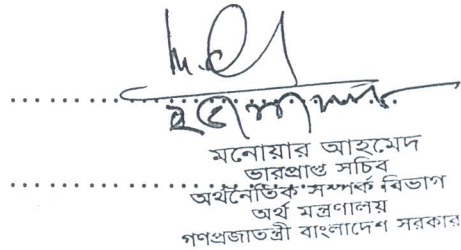 মনোয়ার আহমেদ
ভারপ্রাপ্ত সচিব
অর্থনৈতিক সম্পর্ক বিভাগ
অর্থ মন্ত্রণালয়
গণপ্রজাতন্ত্রী বাংলাদেশ সরকার